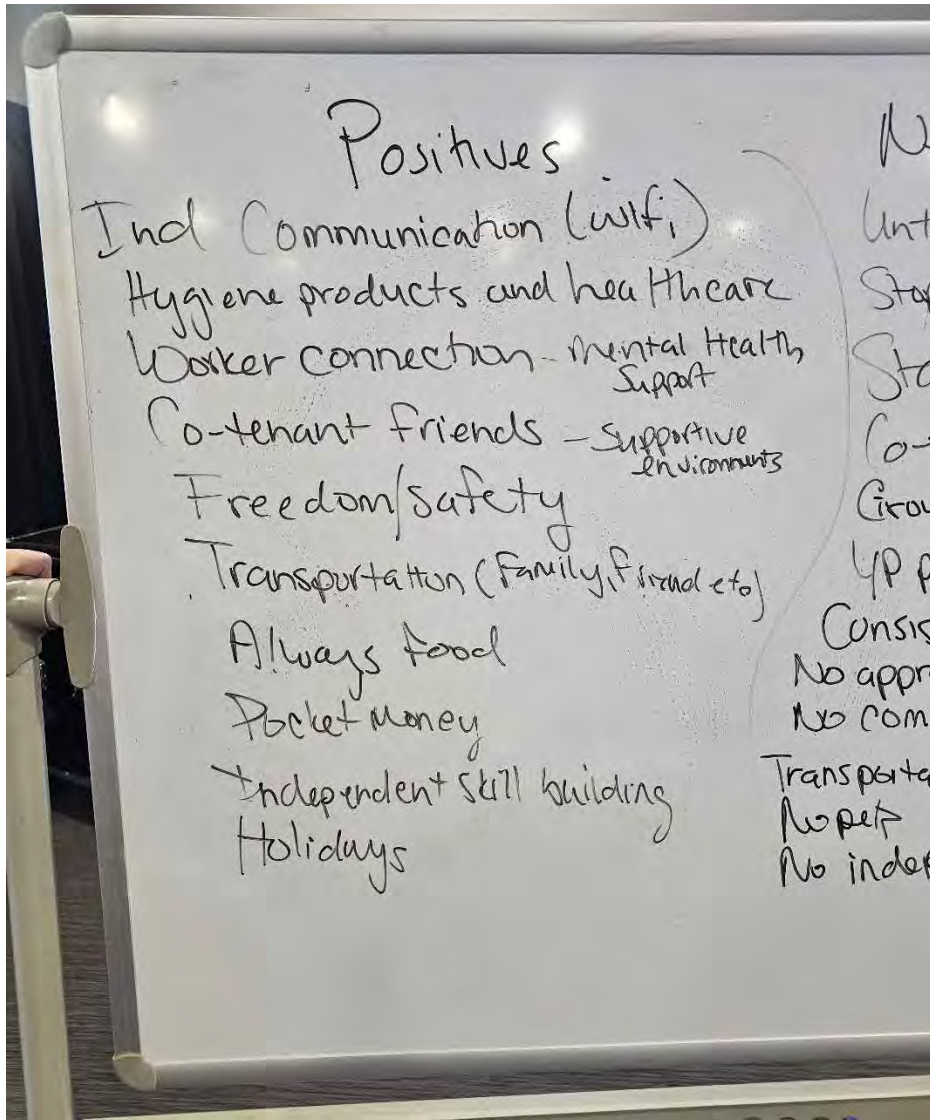 Positives
Ind Communication (wifi)
Hygiene products and healthcare
Worker connection - mental Health
Support
Co-tenant friends - supportive
environments
Freedom/safety
Transportation (family, friend etc)
Always food
Pocket Money
Independent skill building
Holidays
Co-
YP p
Consis
No appr
No com
Transporta
No pets
No indep